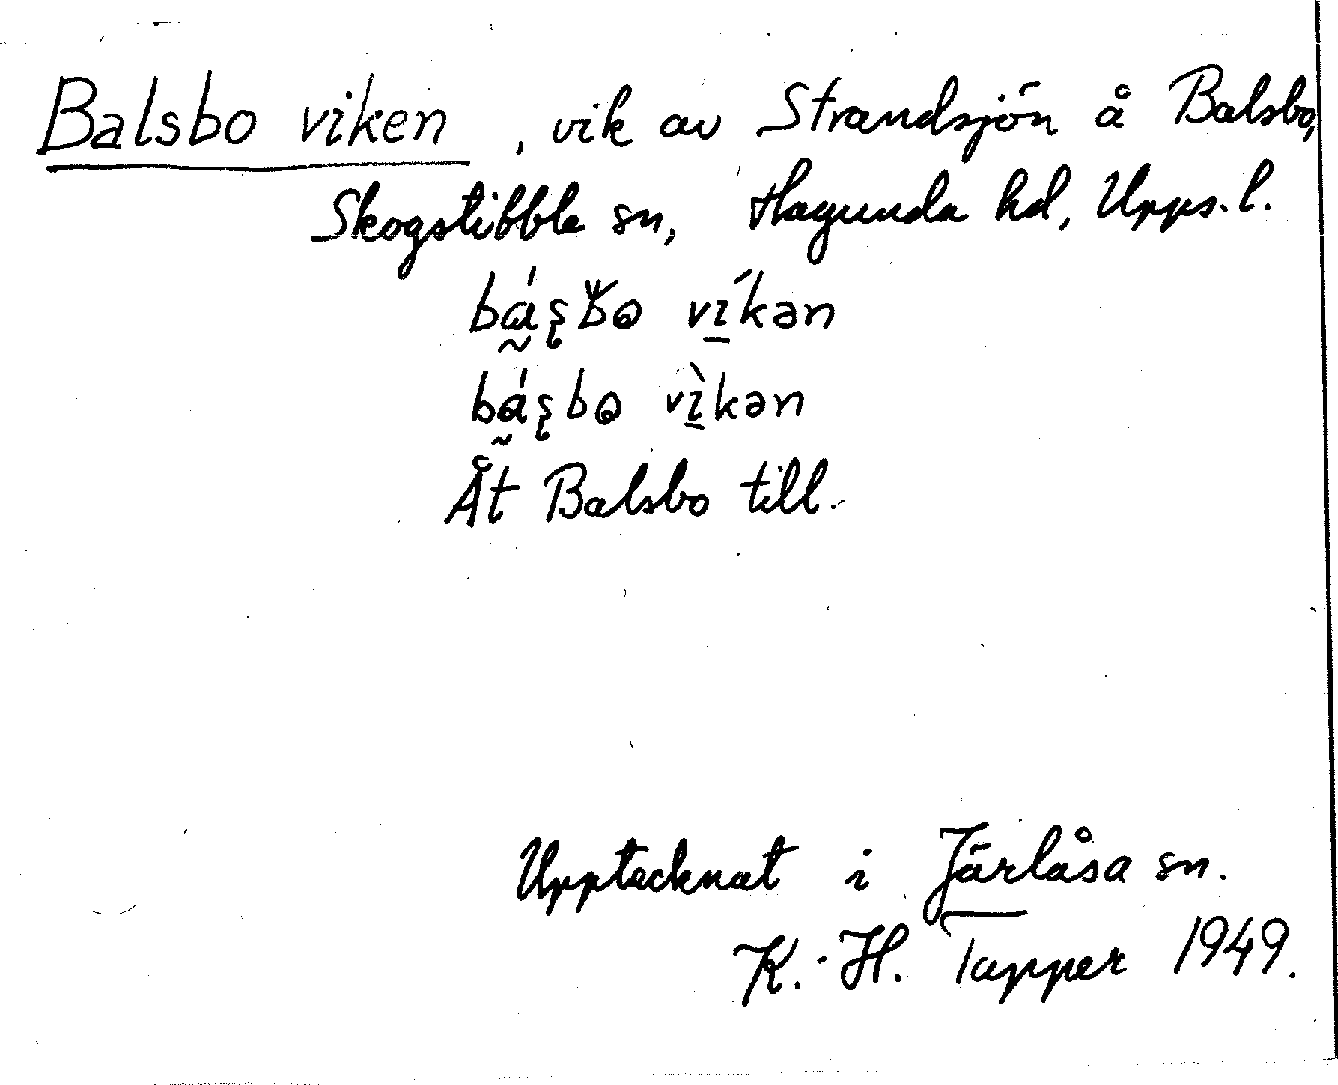 Balsbo viken, vik av Strandsjön å Balsbo,
Skogstibble sn, Hagunda hd, Upps. l.
ví̱kən
vì̱kən
Åt Balsbo till.
Upptecknat i Järlåsa sn.
K.-H. Tapper 1949.